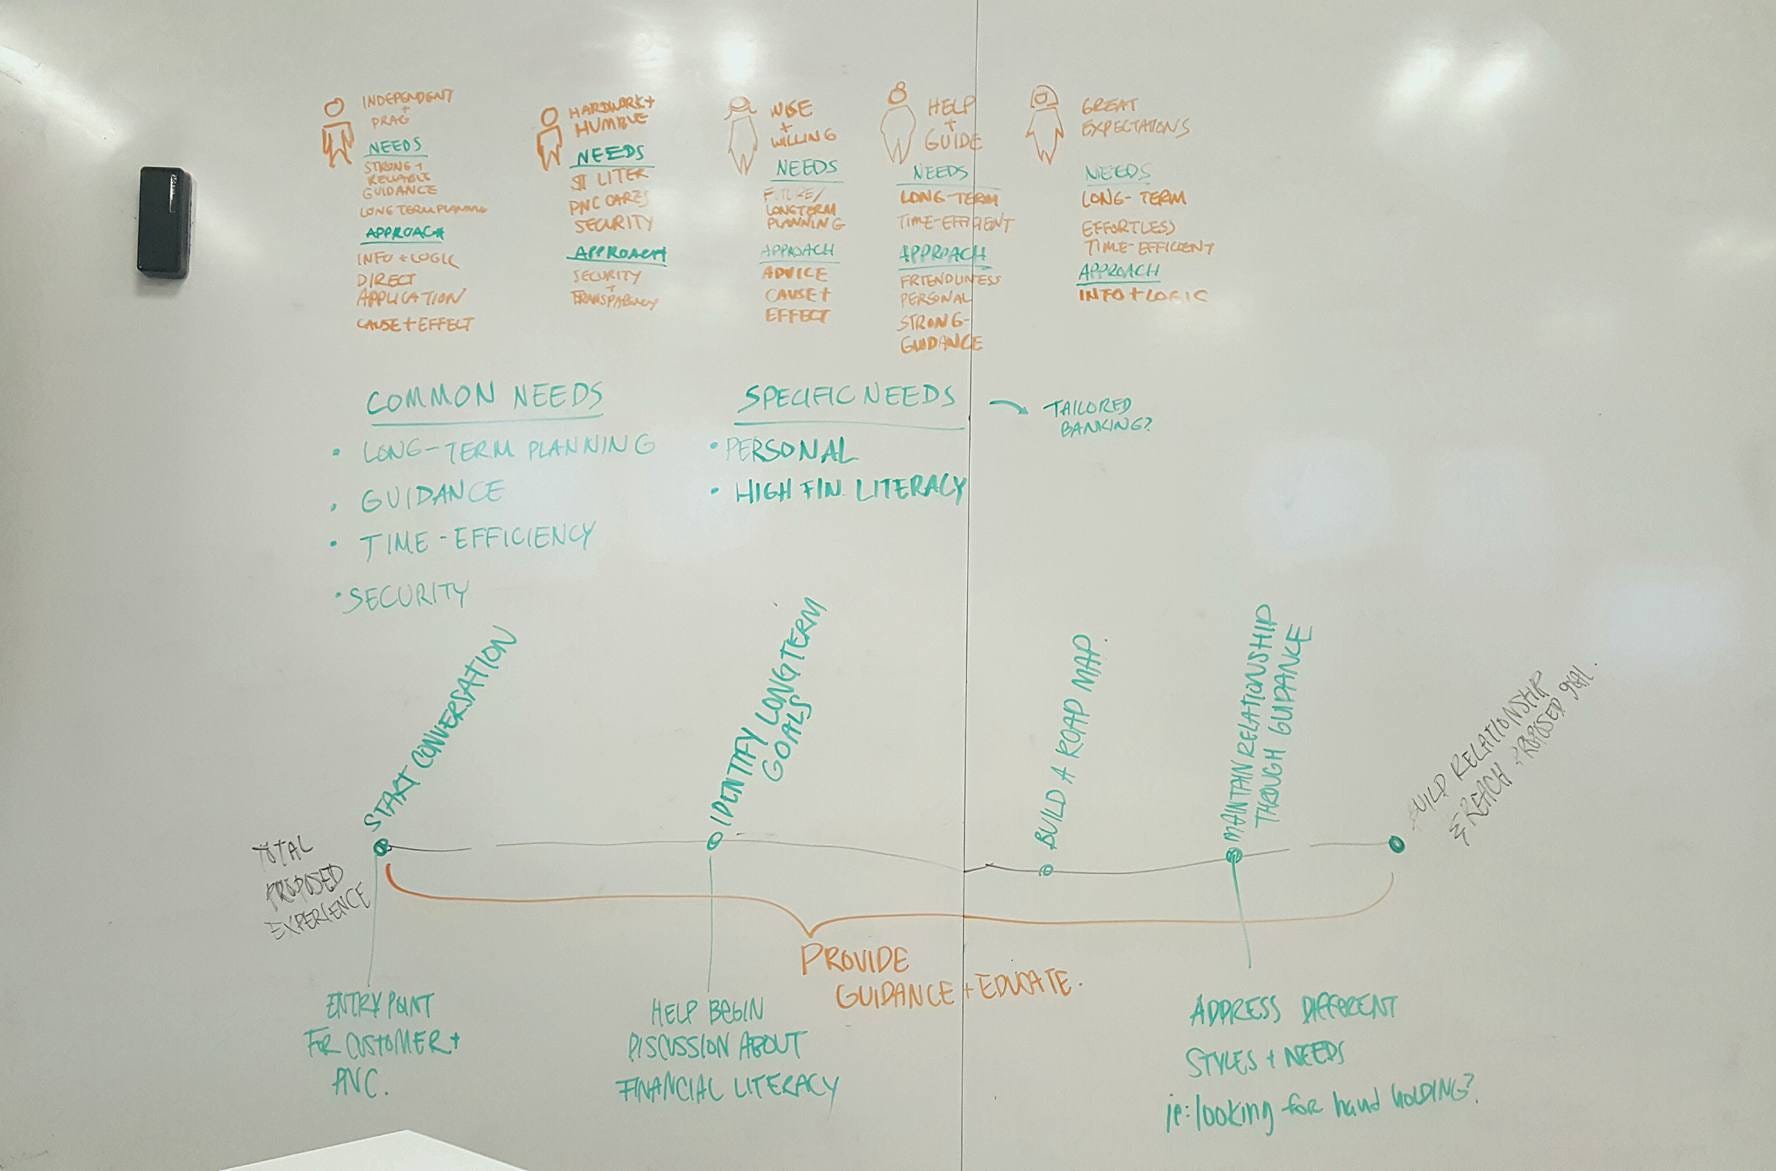 INDEPENDENT
+
PRAG
NEEDS
STRONG +
RELIABLE
GUIDANCE
LONG TERM PLANNING
APPROACH
INFO + LOGIC
DIRECT
APPLICATION
CAUSE + EFFECT
HARDWORK +
HUMBLE
NEEDS
$ LITER
PNC CARES
SECURITY
APPROACH
SECURITY
+
TRANSPARENCY
WISE
+
WILLING
NEEDS
FUTURE/
LONGTERM
PLANNING
APPROACH
ADVICE
CAUSE +
EFFECT
HELP
+
GUIDE
NEEDS
LONG-TERM
TIME-EFFICIENT
APPROACH
FRIENDLINESS
PERSONAL
STRONG-
GUIDANCE
GREAT
EXPECTATIONS
NEEDS
LONG-TERM
EFFORTLESS
TIME-EFFICIENT
APPROACH
INFO + LOGIC
COMMON NEEDS
• LONG-TERM PLANNING
• GUIDANCE
• TIME-EFFICIENCY
• SECURITY
SPECIFIC NEEDS
• PERSONAL
• HIGH FIN. LITERACY
TAILORED
BANKING?
TOTAL
PROPOSED
EXPERIENCE
START CONVERSATION
IDENTIFY LONG TERM
GOALS
BUILD A ROAD MAP.
MAINTAIN RELATIONSHIP
THROUGH GUIDANCE
BUILD RELATIONSHIP
& REACH PROPOSED GOAL.
PROVIDE
GUIDANCE + EDUCATE.
ENTRY POINT
FOR CUSTOMER +
PNC.
HELP BEGIN
DISCUSSION ABOUT
FINANCIAL LITERACY
ADDRESS DIFFERENT
STYLES + NEEDS
ie: looking for hand holding?